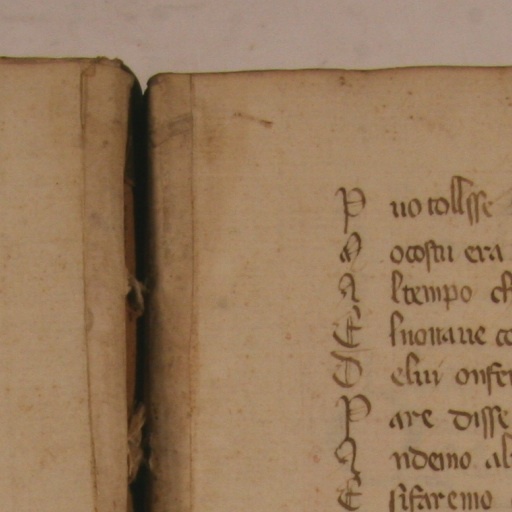 P uo tollsse
M ocostu era
A l tempo ch
E l nonaue co
D elui onfer
P are disse
A ndemo al
E sifaremo